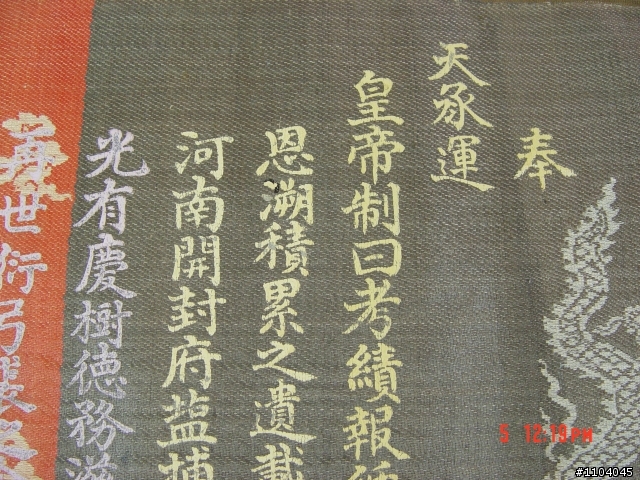 奉
天承運
皇帝制曰考績報
恩溯積累之遺載
河南開封府鹽捕
光有慶樹德務滋
再世衍弓裘之
5 12:19PM
#1104045